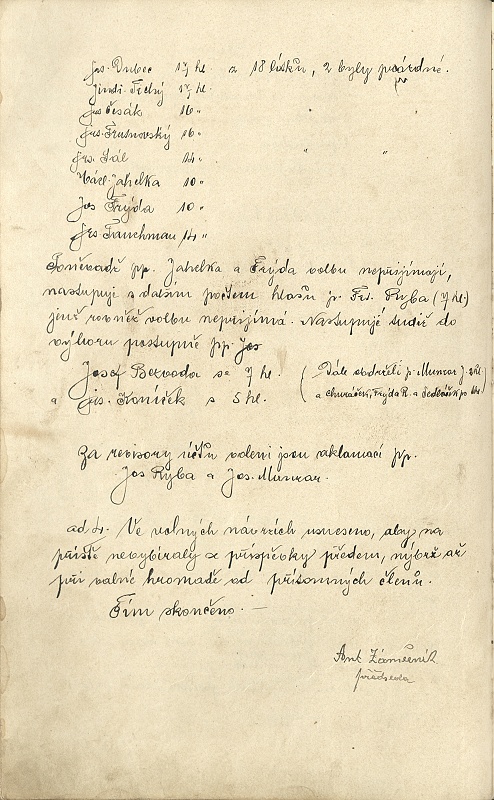 Jos. Dubec 17 hl. z 18 lístků, 2 byly prázdné.
Jindř. Tichý 17 hl.
Jos Česák 16 "
Jos. Trutnovský 16 "
Frs. Sál 14 "
Václ. Jahelka 10 "
Jos Frýda 10 "
Frs Hanchman 14 "
Poněvadž pp. Jahelka a Frýda volbu nepřijímají,
nastupují s dalším počtem hlasů p. Frs. Ryba (7 hl.)
jenž rovněž volbu nepřijímá. Nastupuje tudíž do
výboru postupně pp. Jos
Josef Bervoda se 7 hl. (Dále obdrželi p. Munzar J. 3 hl
a Jos. Koníček s 5 hl. a Churáček, Frýda R. a Sedláček po
Za revisory účtů voleni jsou aklamací pp.
Jos Ryba a Jos. Munzar.
Ve volných návrzích usneseno, aby na
příště nevybíraly se příspěvky předem, nýbrž až
při valné hromadě od přítomných členů.
Tím skončeno. —
Ant Zámečník
předseda